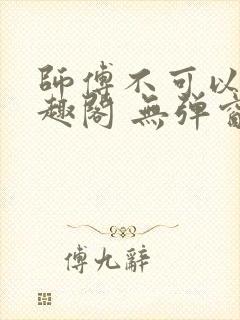 師傅不可以
趣閣 無弹窗
傅九辭